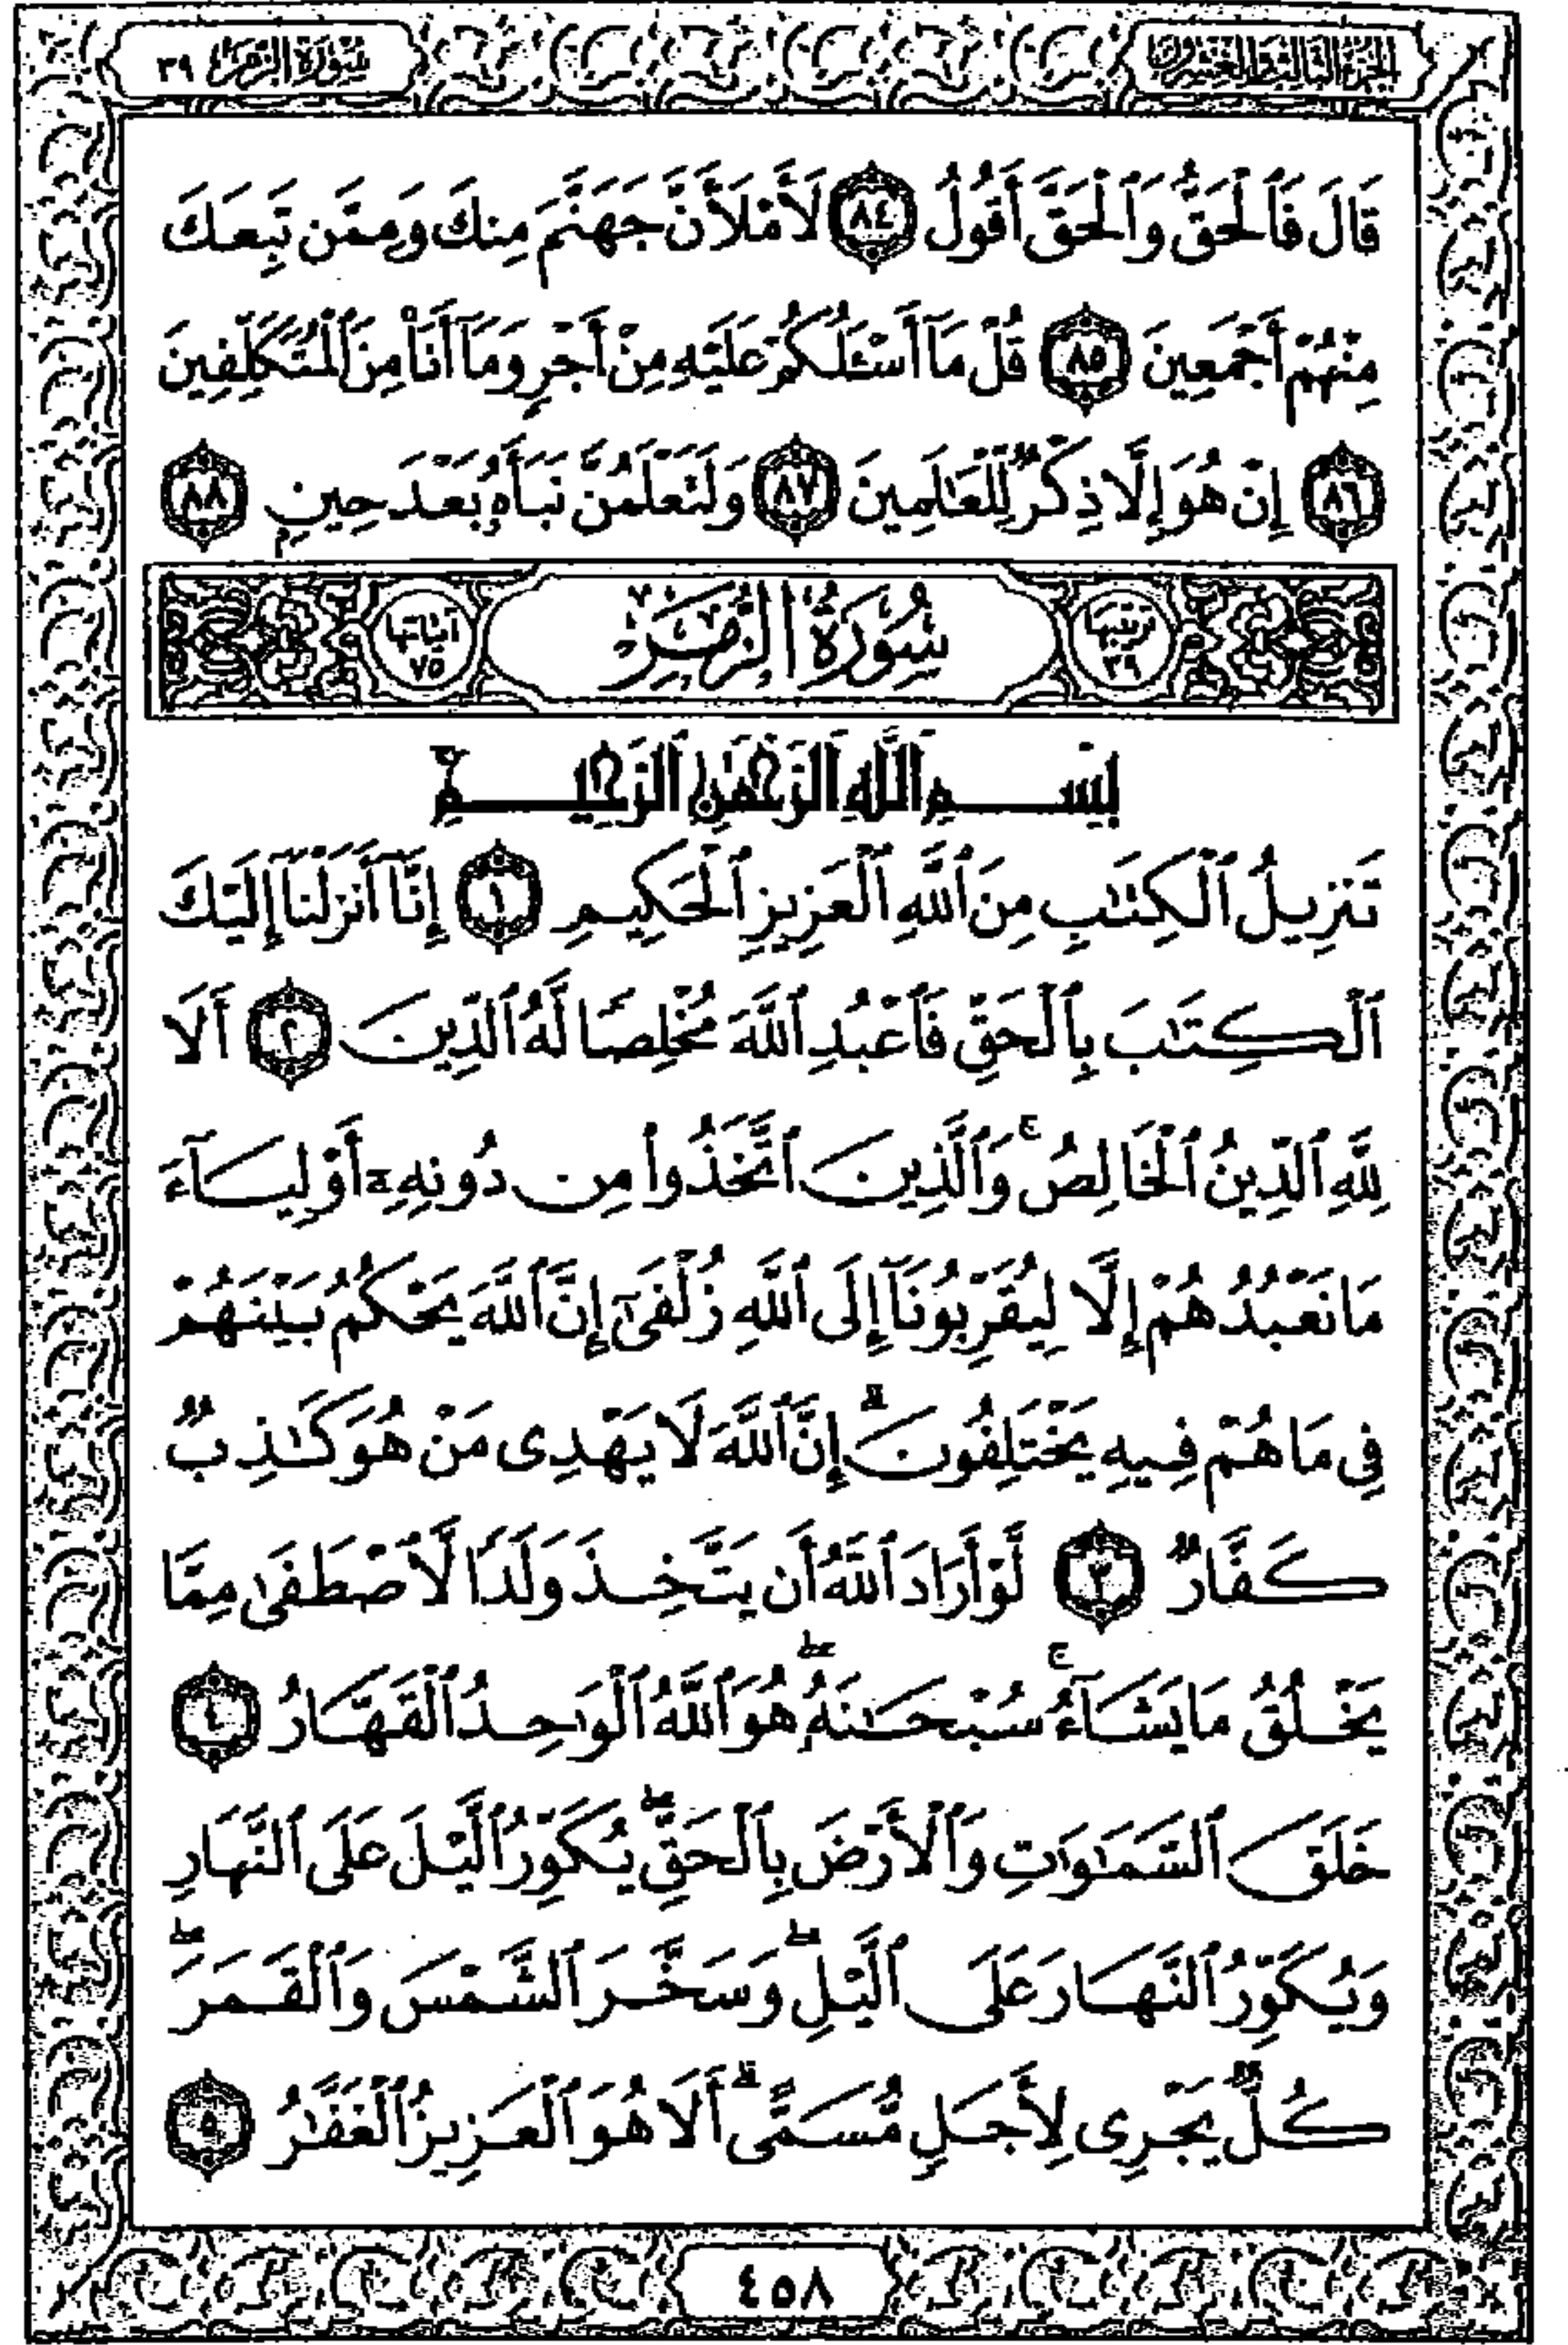 الجزء الثالث والعشرون
سورة الزمر ٣٩
قَالَ فَٱلْحَقُّ وَٱلْحَقَّ أَقُولُ ٨٤ لَأَمْلَأَنَّ جَهَنَّمَ مِنكَ وَمِمَّن تَبِعَكَ
مِنْهُمْ أَجْمَعِينَ ٨٥ قُلْ مَآ أَسْـَٔلُكُمْ عَلَيْهِ مِنْ أَجْرٍ وَمَآ أَنَا۠ مِنَ ٱلْمُتَكَلِّفِينَ
٨٦ إِنْ هُوَ إِلَّا ذِكْرٌ لِّلْعَـٰلَمِينَ ٨٧ وَلَتَعْلَمُنَّ نَبَأَهُۥ بَعْدَ حِينٍۭ ٨٨
ترتيبها ٣٩ سُورَةُ الزُّمَرِ آياتها ٧٥
بِسْمِ ٱللَّهِ ٱلرَّحْمَـٰنِ ٱلرَّحِيمِ
تَنزِيلُ ٱلْكِتَـٰبِ مِنَ ٱللَّهِ ٱلْعَزِيزِ ٱلْحَكِيمِ ١ إِنَّآ أَنزَلْنَآ إِلَيْكَ
ٱلْكِتَـٰبَ بِٱلْحَقِّ فَٱعْبُدِ ٱللَّهَ مُخْلِصًا لَّهُ ٱلدِّينَ ٢ أَلَا
لِلَّهِ ٱلدِّينُ ٱلْخَالِصُ ۚ وَٱلَّذِينَ ٱتَّخَذُوا۟ مِن دُونِهِۦٓ أَوْلِيَآءَ
مَا نَعْبُدُهُمْ إِلَّا لِيُقَرِّبُونَآ إِلَى ٱللَّهِ زُلْفَىٰٓ إِنَّ ٱللَّهَ يَحْكُمُ بَيْنَهُمْ
فِى مَا هُمْ فِيهِ يَخْتَلِفُونَ ۗ إِنَّ ٱللَّهَ لَا يَهْدِى مَنْ هُوَ كَـٰذِبٌ
كَفَّارٌ ٣ لَّوْ أَرَادَ ٱللَّهُ أَن يَتَّخِذَ وَلَدًا لَّٱصْطَفَىٰ مِمَّا
يَخْلُقُ مَا يَشَآءُ ۚ سُبْحَـٰنَهُۥ ۖ هُوَ ٱللَّهُ ٱلْوَٰحِدُ ٱلْقَهَّارُ ٤
خَلَقَ ٱلسَّمَـٰوَٰتِ وَٱلْأَرْضَ بِٱلْحَقِّ ۖ يُكَوِّرُ ٱلَّيْلَ عَلَى ٱلنَّهَارِ
وَيُكَوِّرُ ٱلنَّهَارَ عَلَى ٱلَّيْلِ ۖ وَسَخَّرَ ٱلشَّمْسَ وَٱلْقَمَرَ ۖ
كُلٌّ يَجْرِى لِأَجَلٍ مُّسَمًّى ۗ أَلَا هُوَ ٱلْعَزِيزُ ٱلْغَفَّـٰرُ ٥
٤٥٨